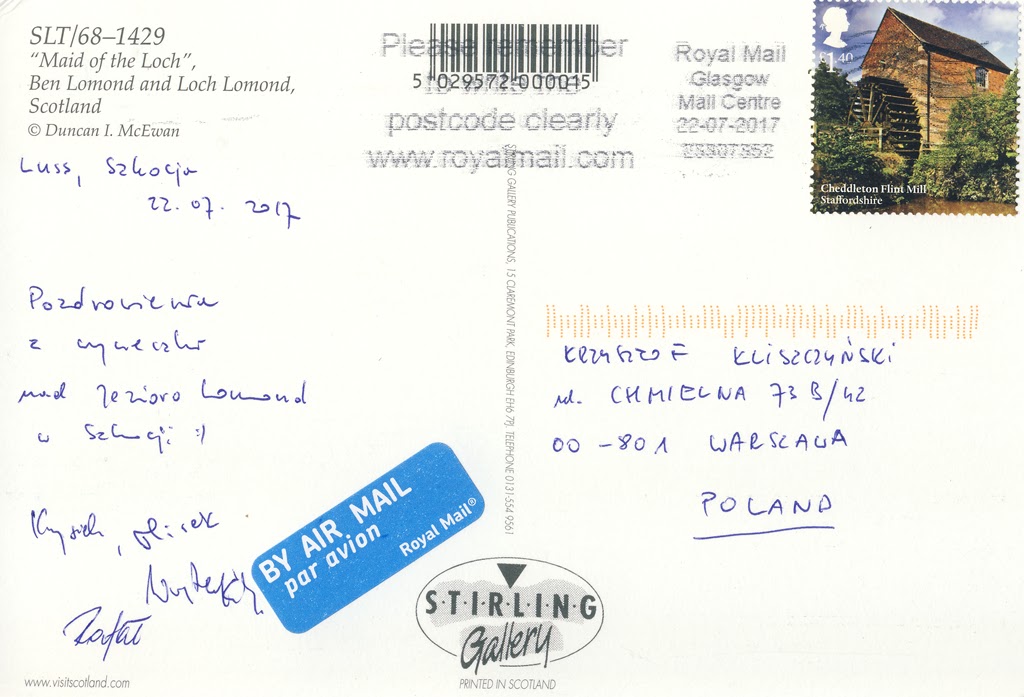 SLT/68–1429
"Maid of the Loch",
Ben Lomond and Loch Lomond,
Scotland
© Duncan I. McEwan
Luss, Szkocja
22.07.2017
Pozdrowienia
z wycieczki
nad Jezioro Lomond
w Szkocji :)
Krysiek,
Rafał
www.visitscotland.com
5 029572 000015
Please remember
postcode clearly
www.royalmail.com
Royal Mail
Glasgow
Mail Centre
22-07-2017
£1.40
Cheddleton Flint Mill
Staffordshire
STIRLING GALLERY PUBLICATIONS, 15 CLAREMONT PARK, EDINBURGH EH6 7PJ. TELEPHONE 0131-554 9561
KRZYSZTOF KLISZCZYŃSKI
ul. CHMIELNA 73B/42
00-801 WARSZAWA
POLAND
BY AIR MAIL
par avion
Royal Mail®
S·T·I·R·L·I·N·G
Gallery
PRINTED IN SCOTLAND